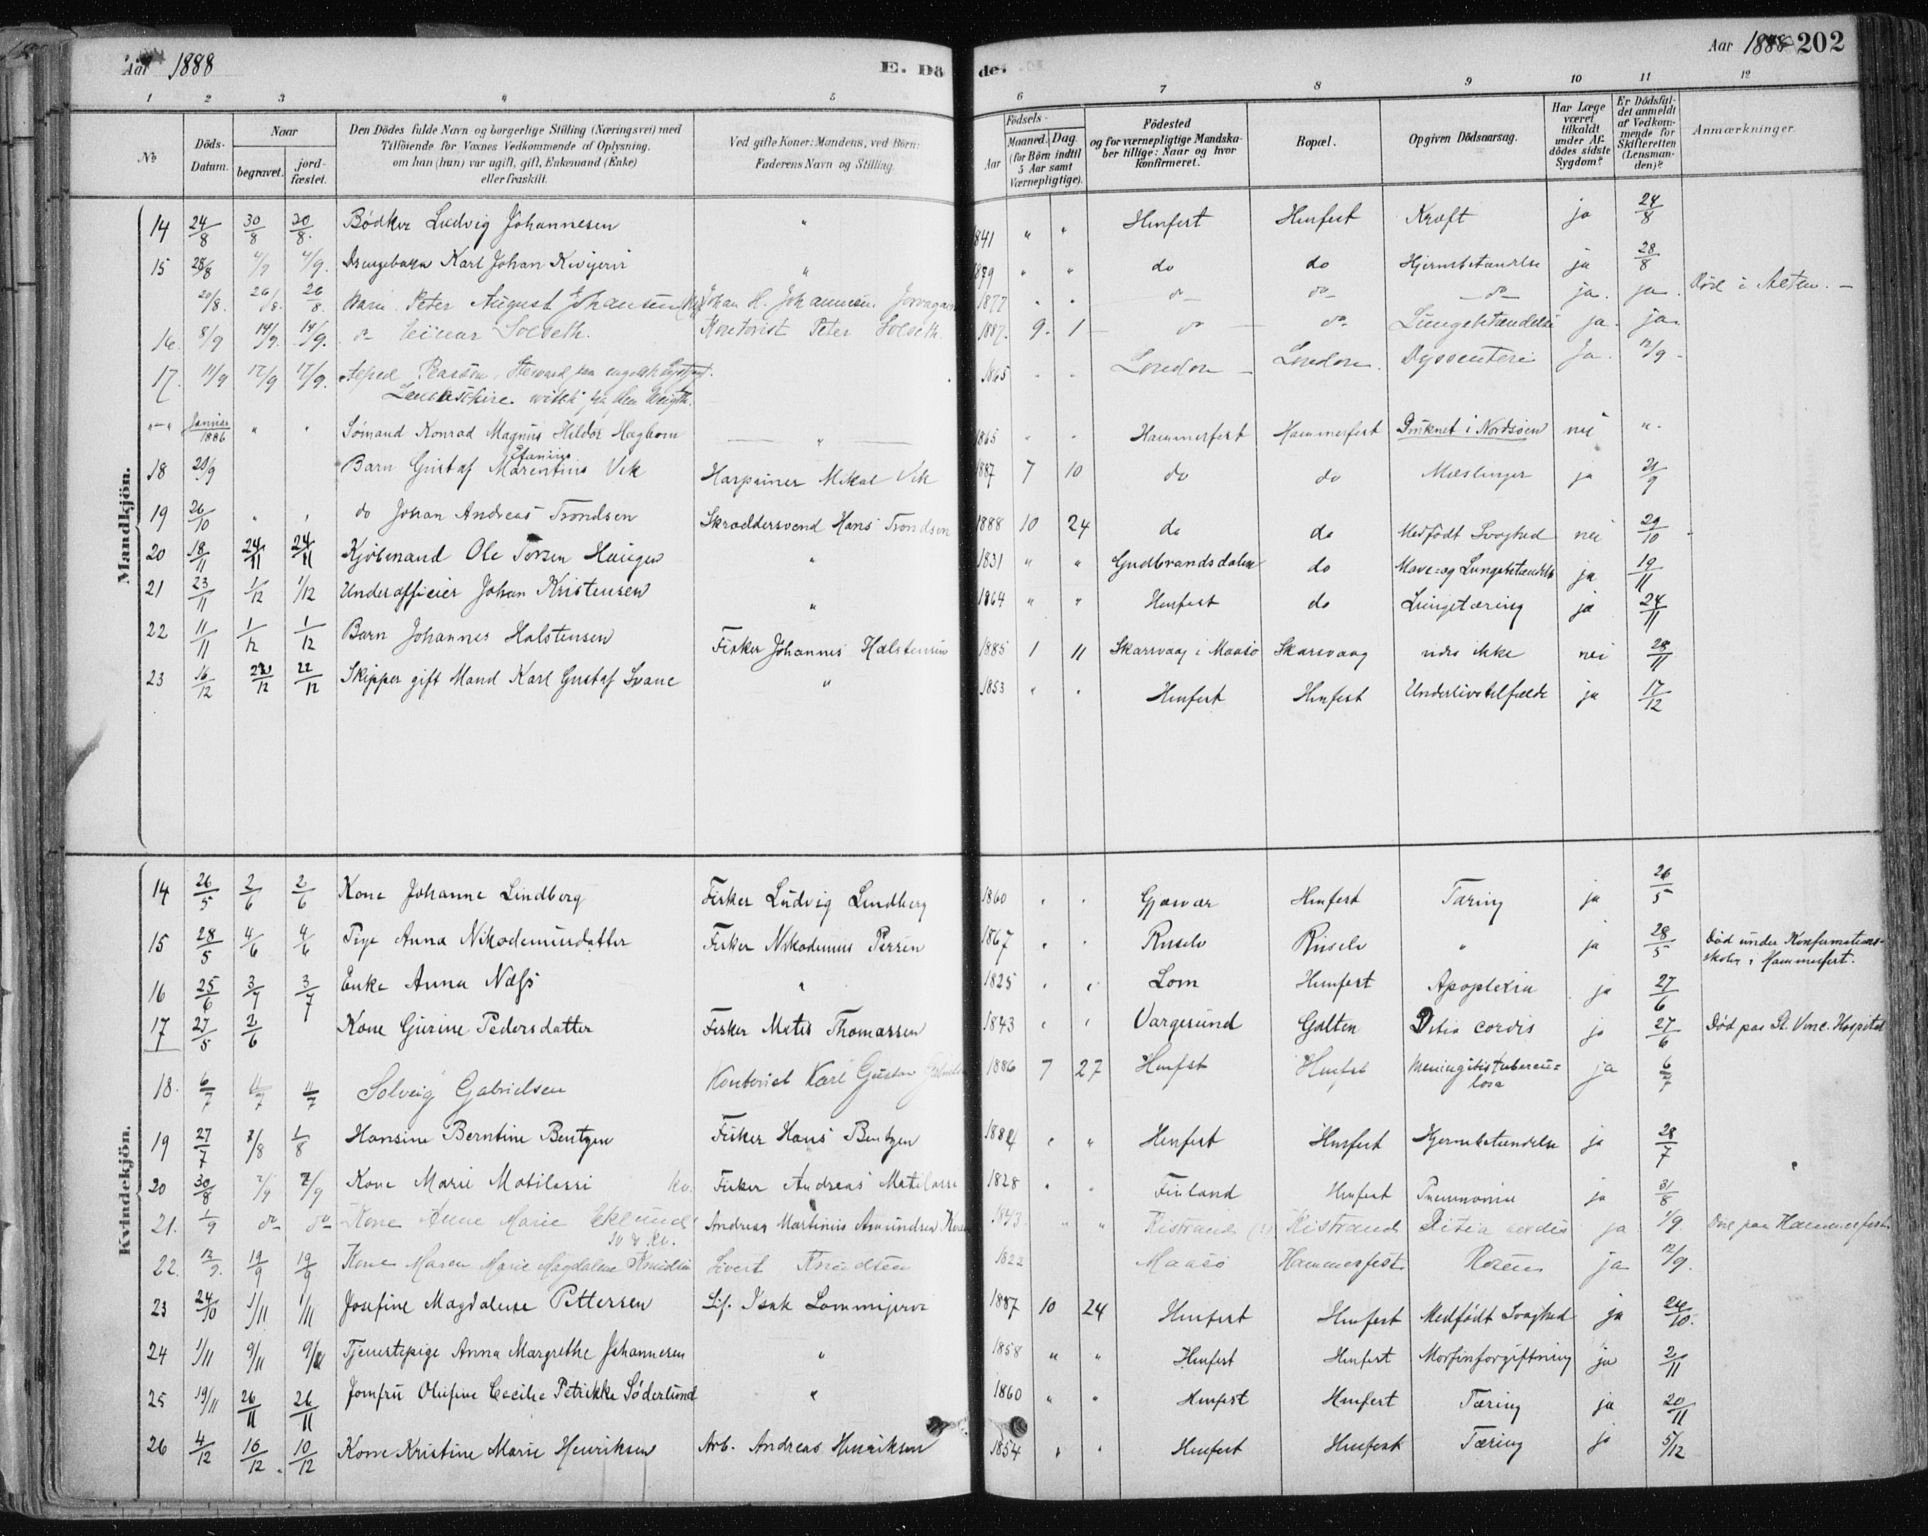 Aar 1888
E. Dö de.
Aar 1888 202
1 2 3 4 5 6 7 8 9 10 11 12
No
Döds-Datum.
Naar begravet. jordfæstet.
Den Dödes fulde Navn og borgerlige Stilling (Næringsvei) med Tilföiende for Voxnes Vedkommende af Oplysning, om han (hun) var ugift, gift, Enkemand (Enke) eller fraskilt.
Ved gifte Koner: Mandens, ved Börn: Faderens Navn og Stilling.
Födsels- Aar Maaned. Dag. (for Börn indtil 5 Aar samt Værnepligtige).
Födested og for værnepligtige Mandskaber tillige: Naar og hvor konfirmeret.
Bopæl.
Opgiven Dödsaarsag.
Har Læge været tilkaldt under Afdödes sidste Sygdom?
Er Dödsfaldet anmeldt af Vedkommende for Skifteretten (Lensmanden)?
Anmærkninger.
Mandkjön.
14 24/8 30/8 30/8. Bödker Ludvig Johannesen " 841 " " Hmfest Hmfest Kræft ja 24/8
15 28/8 4/9 4/9. Drengebarn Karl Johan Kivijervi " 1889 " " do do Hjernebetændelse ja 28/8
20/8. 26/8. 26/8. Barn Peter August Johansen Johan H. Johannesen 1877 " " do do do ja. ja. Död i Alten. —
16. 8/9 14/9. 14/9. do Einar Solbeth. Kontorist Peter Solbeth. 1887. 9. 1 do do Lungebetændelse ja. ja.
17. 11/9 12/9 12/9. Alfred Pearson, Steward paa engelsk Lystyacht. Lancashire. 1865 " " London London. Dyssenteri Ja. 12/9.
"-" Januar 1886 " " Sömand Konrad Magnus Hildor Hagbom " 1865 " " Hammerfest Hammerfest Druknet i Nordsöen nei ".
18 20/9 Barn Gustaf Marentius Vik Harpuner Mikal Vik 1887 7 10 do do Mæslinger ja 21/9
19 26/10 " " do Johan Andreas Trondsen Skræddersvend Hans Trondsen 1888 10 24 do do Medfödt Svaghed nei 29/10
20 18/11 24/11 24/11 Kjöbmand Ole Torsen Haugen " 1831 " " Gudbrandsdalen do Mave= og Lungebetændelse ja 19/11
21 23/11 1/12 1/12 Underofficier Johan Kristensen " 1864 " " Hmfest do Lungetæring ja 24/11
22 11/11 1/12 1/12 Barn Johannes Halstensen Fisker Johannes Halstensen 1885 1 11 Skarsvaag i Maasö Skarsvaag vides ikke nei 28/11
23 16/12 22/12 22/12 Skipper gift Mand Karl Gustaf Svane " 1853 " " Hmfest Hmfest Underlivstilfælde ja 17/12
Kvindekjön.
14 26/5 2/6 2/6 Kone Johanne Lindberg Fisker Ludvig Lindberg 1860 " " Gjæsvær Hmfest Tæring ja 26/5
15 28/5 4/6 4/6 Pige Anna Nikodemusdatter Fisker Nikodemus Persen 1867 " " Russelv Russelv " ja 28/5 Död under Konfirmationsskolen i Hammerfest.
16 25/6 3/7 3/7 Enke Anna Næss " 1825 " " Lom Hmfest Apoplexia ja 27/6
17 27/5 2/6 Kone Gurine Pedersdatter Fisker Metes Thomassen 1843 " " Vargesund Galten Vitia cordis ja 27/6 Död paa St. Vinc. Hospital
18. 6/7 11/7 11/7 Solveig Gabrielsen Kontorist Karl Gustav Gabrielsen 1886 7 27 Hmfest Hmfest Meningitis tuberculosa ja 6/7
19 27/7 1/8 1/8 Hansine Berntine Bentzen Fisker Hans Bentzen 1884 " " Hmfest Hmfest Hjernebetændelse ja 28/7
20 30/8 7/9 7/9 Kone Marie Matilassi kv. Fisker Andreas Matilassi 1828 " " Finland Hmfest Pneumonia ja 31/8
21. 1/9 do do Kone Anne Marie Eklund Andreas Martinius Amundsen 1843 " " Kistrand (?) Kistrand Vitia cordis ja 1/9. Död paa Hammerfest
22. 12/9. 19/9 19/9 Kone Maren Marie Magdalene Knudsen Sivert Knudsen 1822 Maasö Hammerfest Rosen ja 12/9.
23 24/10 1/11 1/11 Josefine Magdalene Pettersen Isak Lommijervi 1887 10 24 Hmfest Hmfest Medfödt Svaghed ja 24/10.
24 1/11 9/11 9/11 Tjenestepige Anna Margrethe Johannesen " 1858 " " Hmfest Hmfest Morfinforgiftning ja 2/11
25 19/11 26/11 26/11 Jomfru Olufine Cecilie Petrikke Söderlund " 1860 " " Hmfest Hmfest Tæring ja 20/11
26 4/12 10/12. 10/12 Kone Kristine Marie Henriksen Arb. Andreas Henriksen 1854 " " Hmfest Hmfest Tæring ja 5/12